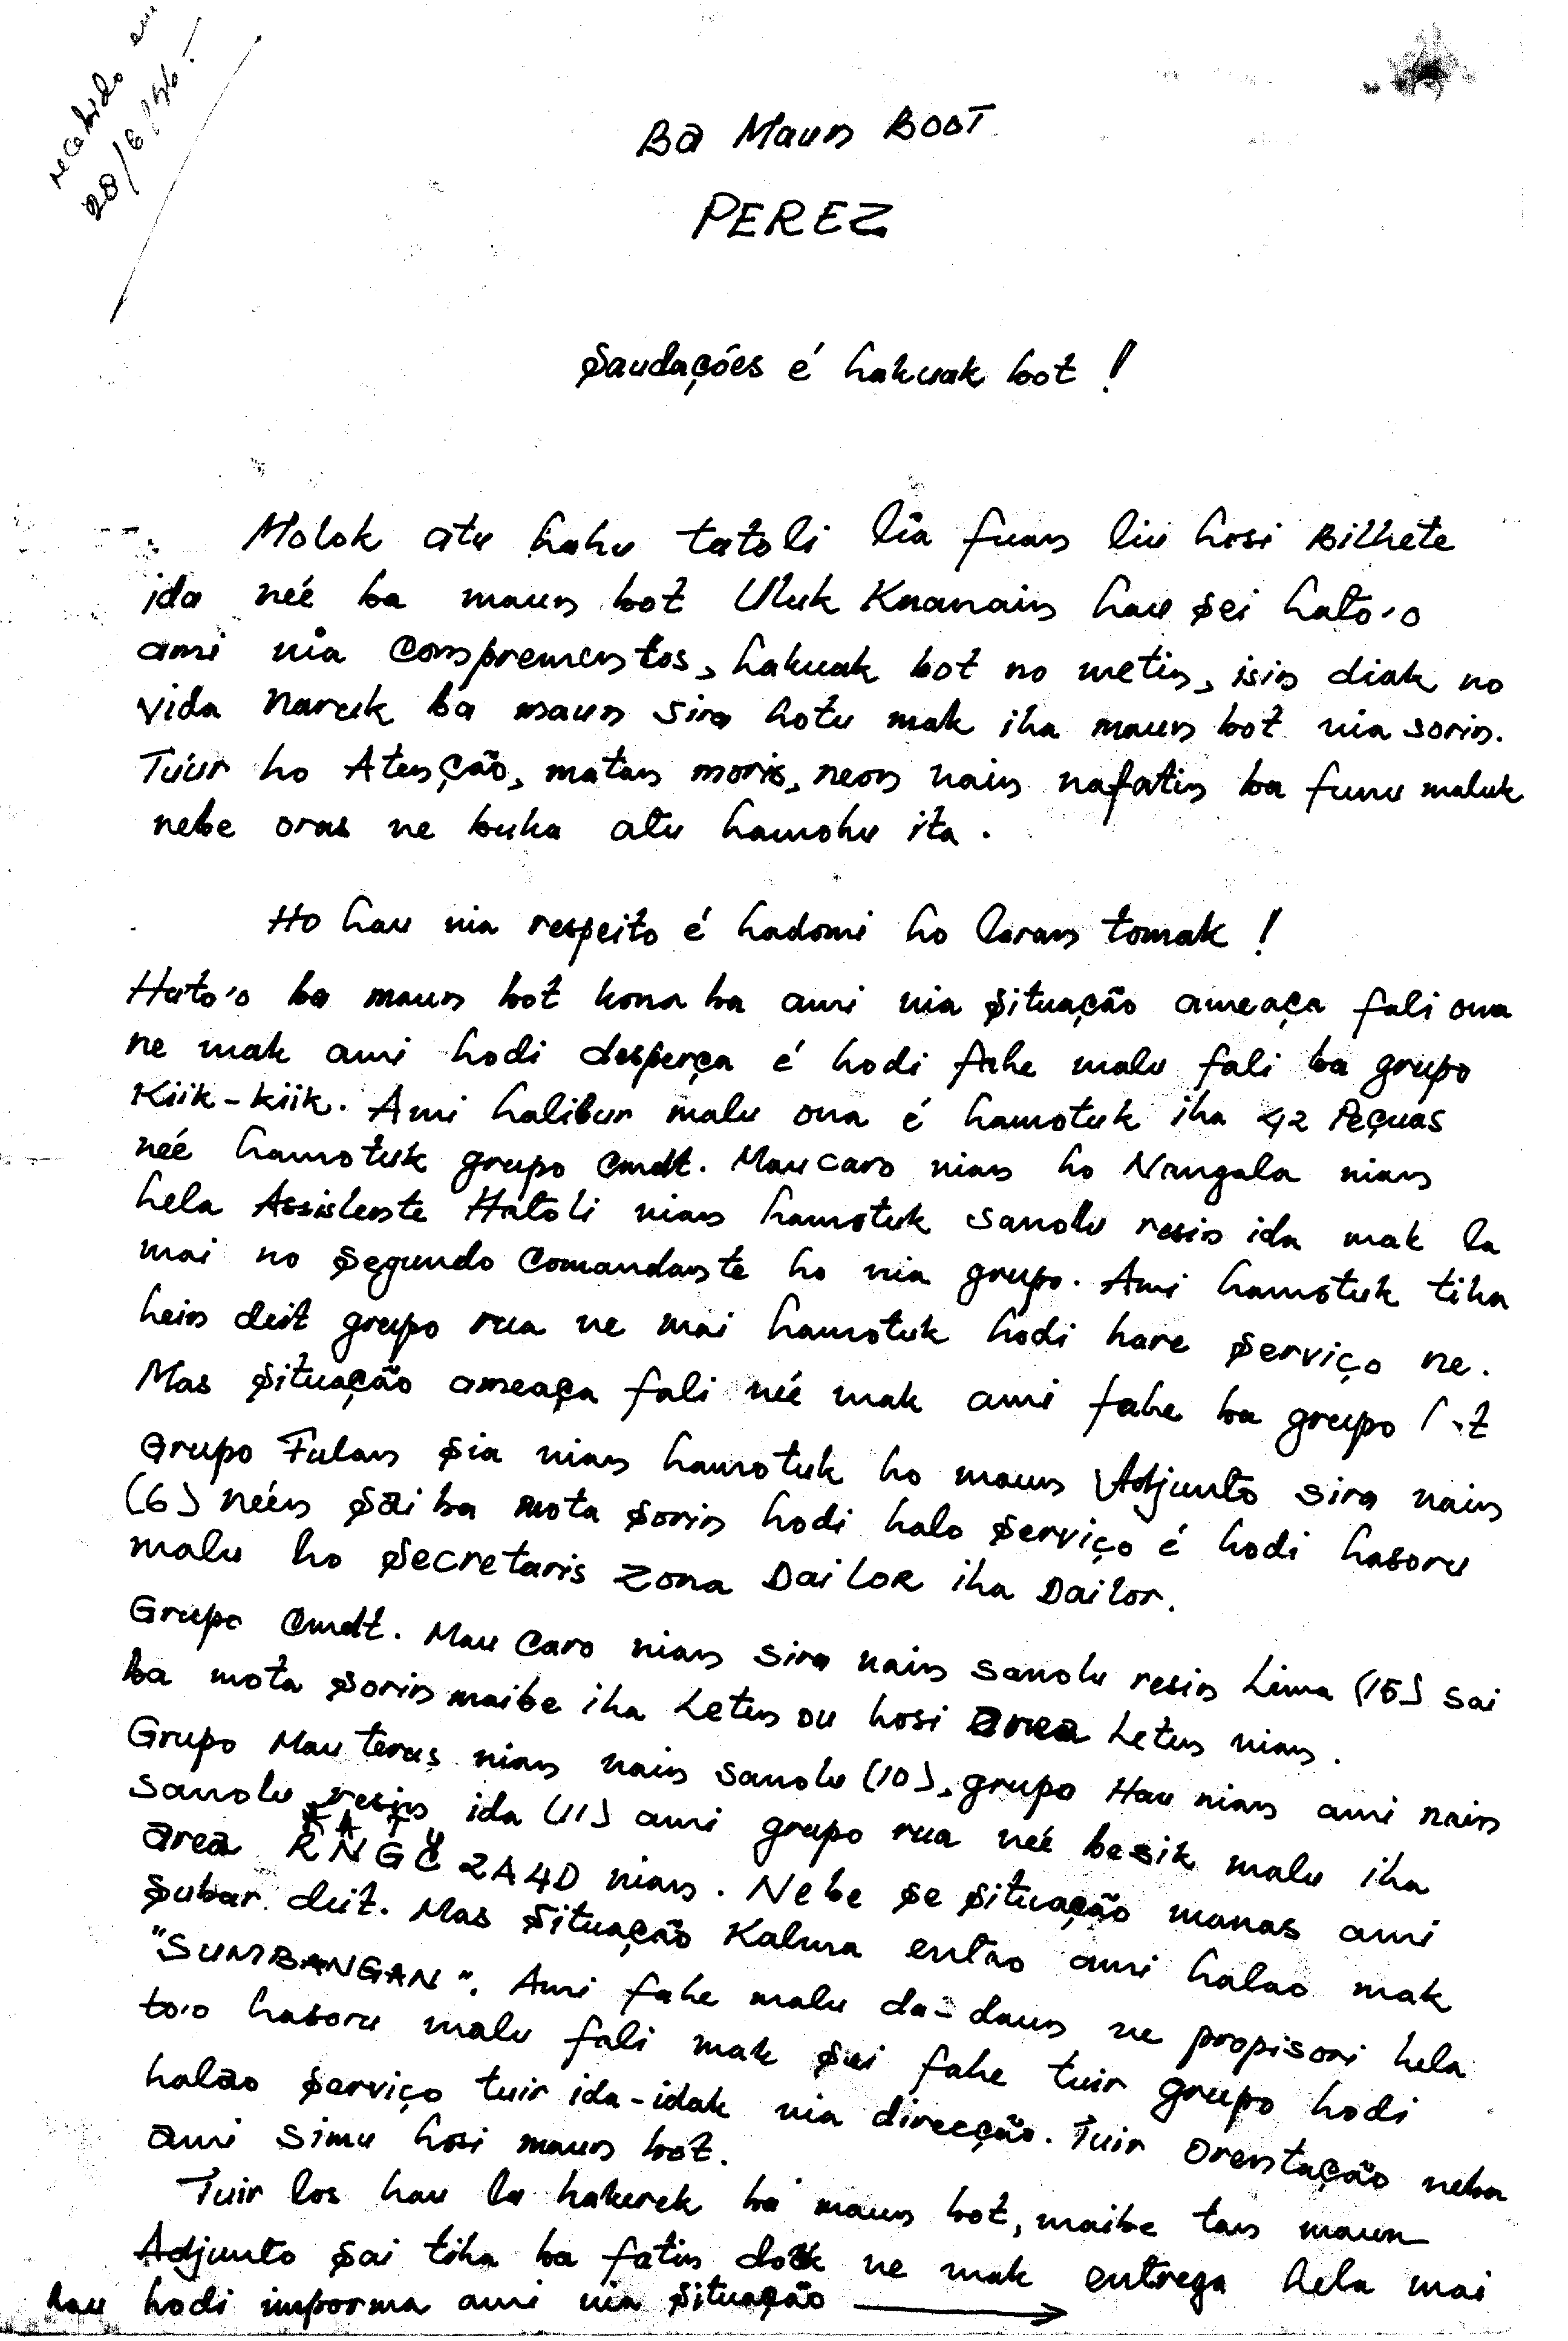 recebido em
28/6/96!
Ba Maun BooT
PEREZ
Saudações é hakuak bot !
Molok atu hahu tatoli lia fuan liu hosi Bilhete
ida neé ba maun bot Uluk Knanain hau sei hato'o
ami nia Conprementos, hakuak bot no metin, isin diak no
vida naruk ba maun sira hotu mak iha maun bot nia sorin.
Tuur ho Atenção, matan moris, neon nain nafatin ba funu maluk
nebe oras ne buka atu hamohu ita .
Ho hau nia respeito é hadomi ho laran tomak !
Hato'o ba maun bot kona ba ami nia situação ameaça fali ona
ne mak ami hodi desperça é hodi fahe malu fali ba grupo
Kiik-kiik. Ami halibur malu ona é hamotuk iha 42 Peçuas
neé hamotuk grupo Cmdt. Maucaro nian ho Nangala nian
hela Assistente Hatoli nian hamotuk sanolu resin ida mak la
mai no segundo Comandante ho nia grupo. Ami hamotuk tiha
hein deit grupo rua ne mai hamotuk hodi hare serviço ne.
Mas situação ameaça fali neé mak ami fahe ba grupo
Grupo Fulan sia nian hamotuk ho maun Adjunto sira nain
(6) neén sai ba mota sorin hodi halo serviço é hodi hasoru
malu ho secretaris zona DaiLOR iha Dailor.
Grupo Cmdt. Mau Caro nian sira nain sanolu resin Lima (15) sai
ba mota sorin maibe iha Letun ou hosi area Letun nian.
Grupo Mau terus nian nain sanolu (10), grupo Hau nian ami nain
sanolu resin ida (11) ami grupo rua neé besik malu iha
area RNGC 2A4D nian. Nebe se situação manas ami
subar deit. Mas situação Kalma entao ami halao mak
"SUMBANGAN". Ami fahe malu da-daun ne propisori hela
to'o hasoru malu fali mak sei fahe tuir grupo hodi
halao serviço tuir ida-idak nia direcção. Tuir Orentação neba
ami simu hosi maun bot.
Tuir los hau la hakerek ba maun bot, maibe tan maun
Adjunto sai tiha ba fatin dok ne mak entrega hela mai
hau hodi imporma ami nia situação